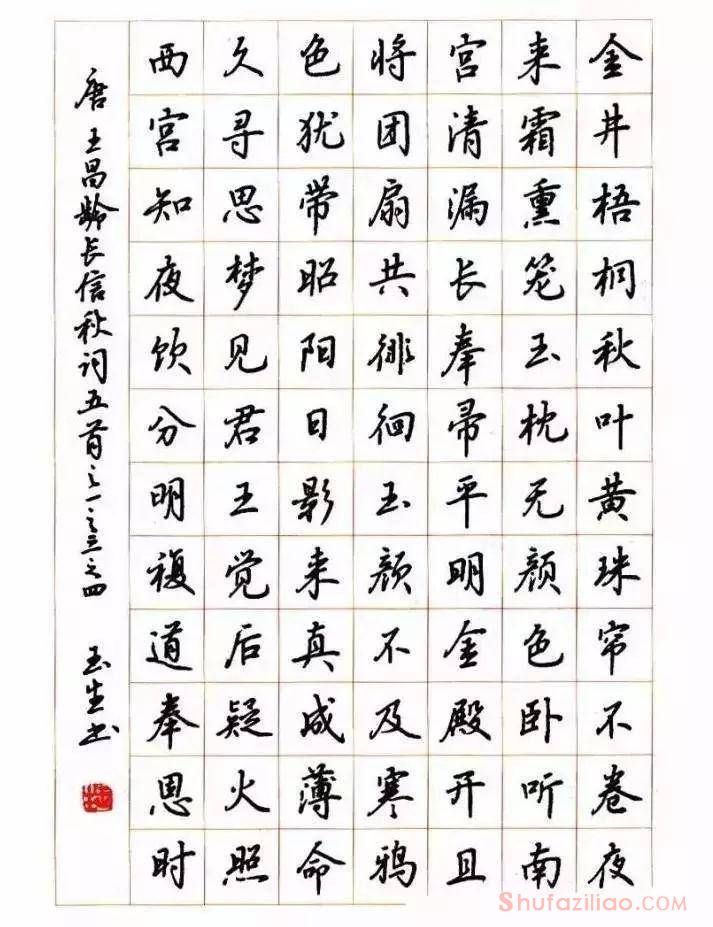 金井梧桐秋叶黄珠帘不卷夜
来霜熏笼玉枕无颜色卧听南
宫清漏长奉帚平明金殿开且
将团扇共徘徊玉颜不及寒鸦
色犹带昭阳日影来真成薄命
久寻思梦见君王觉后疑火照
西宫知夜饮分明複道奉恩时
唐王昌龄长信秋词五首之一之三之四 玉生书
ShufaziliaoCOM